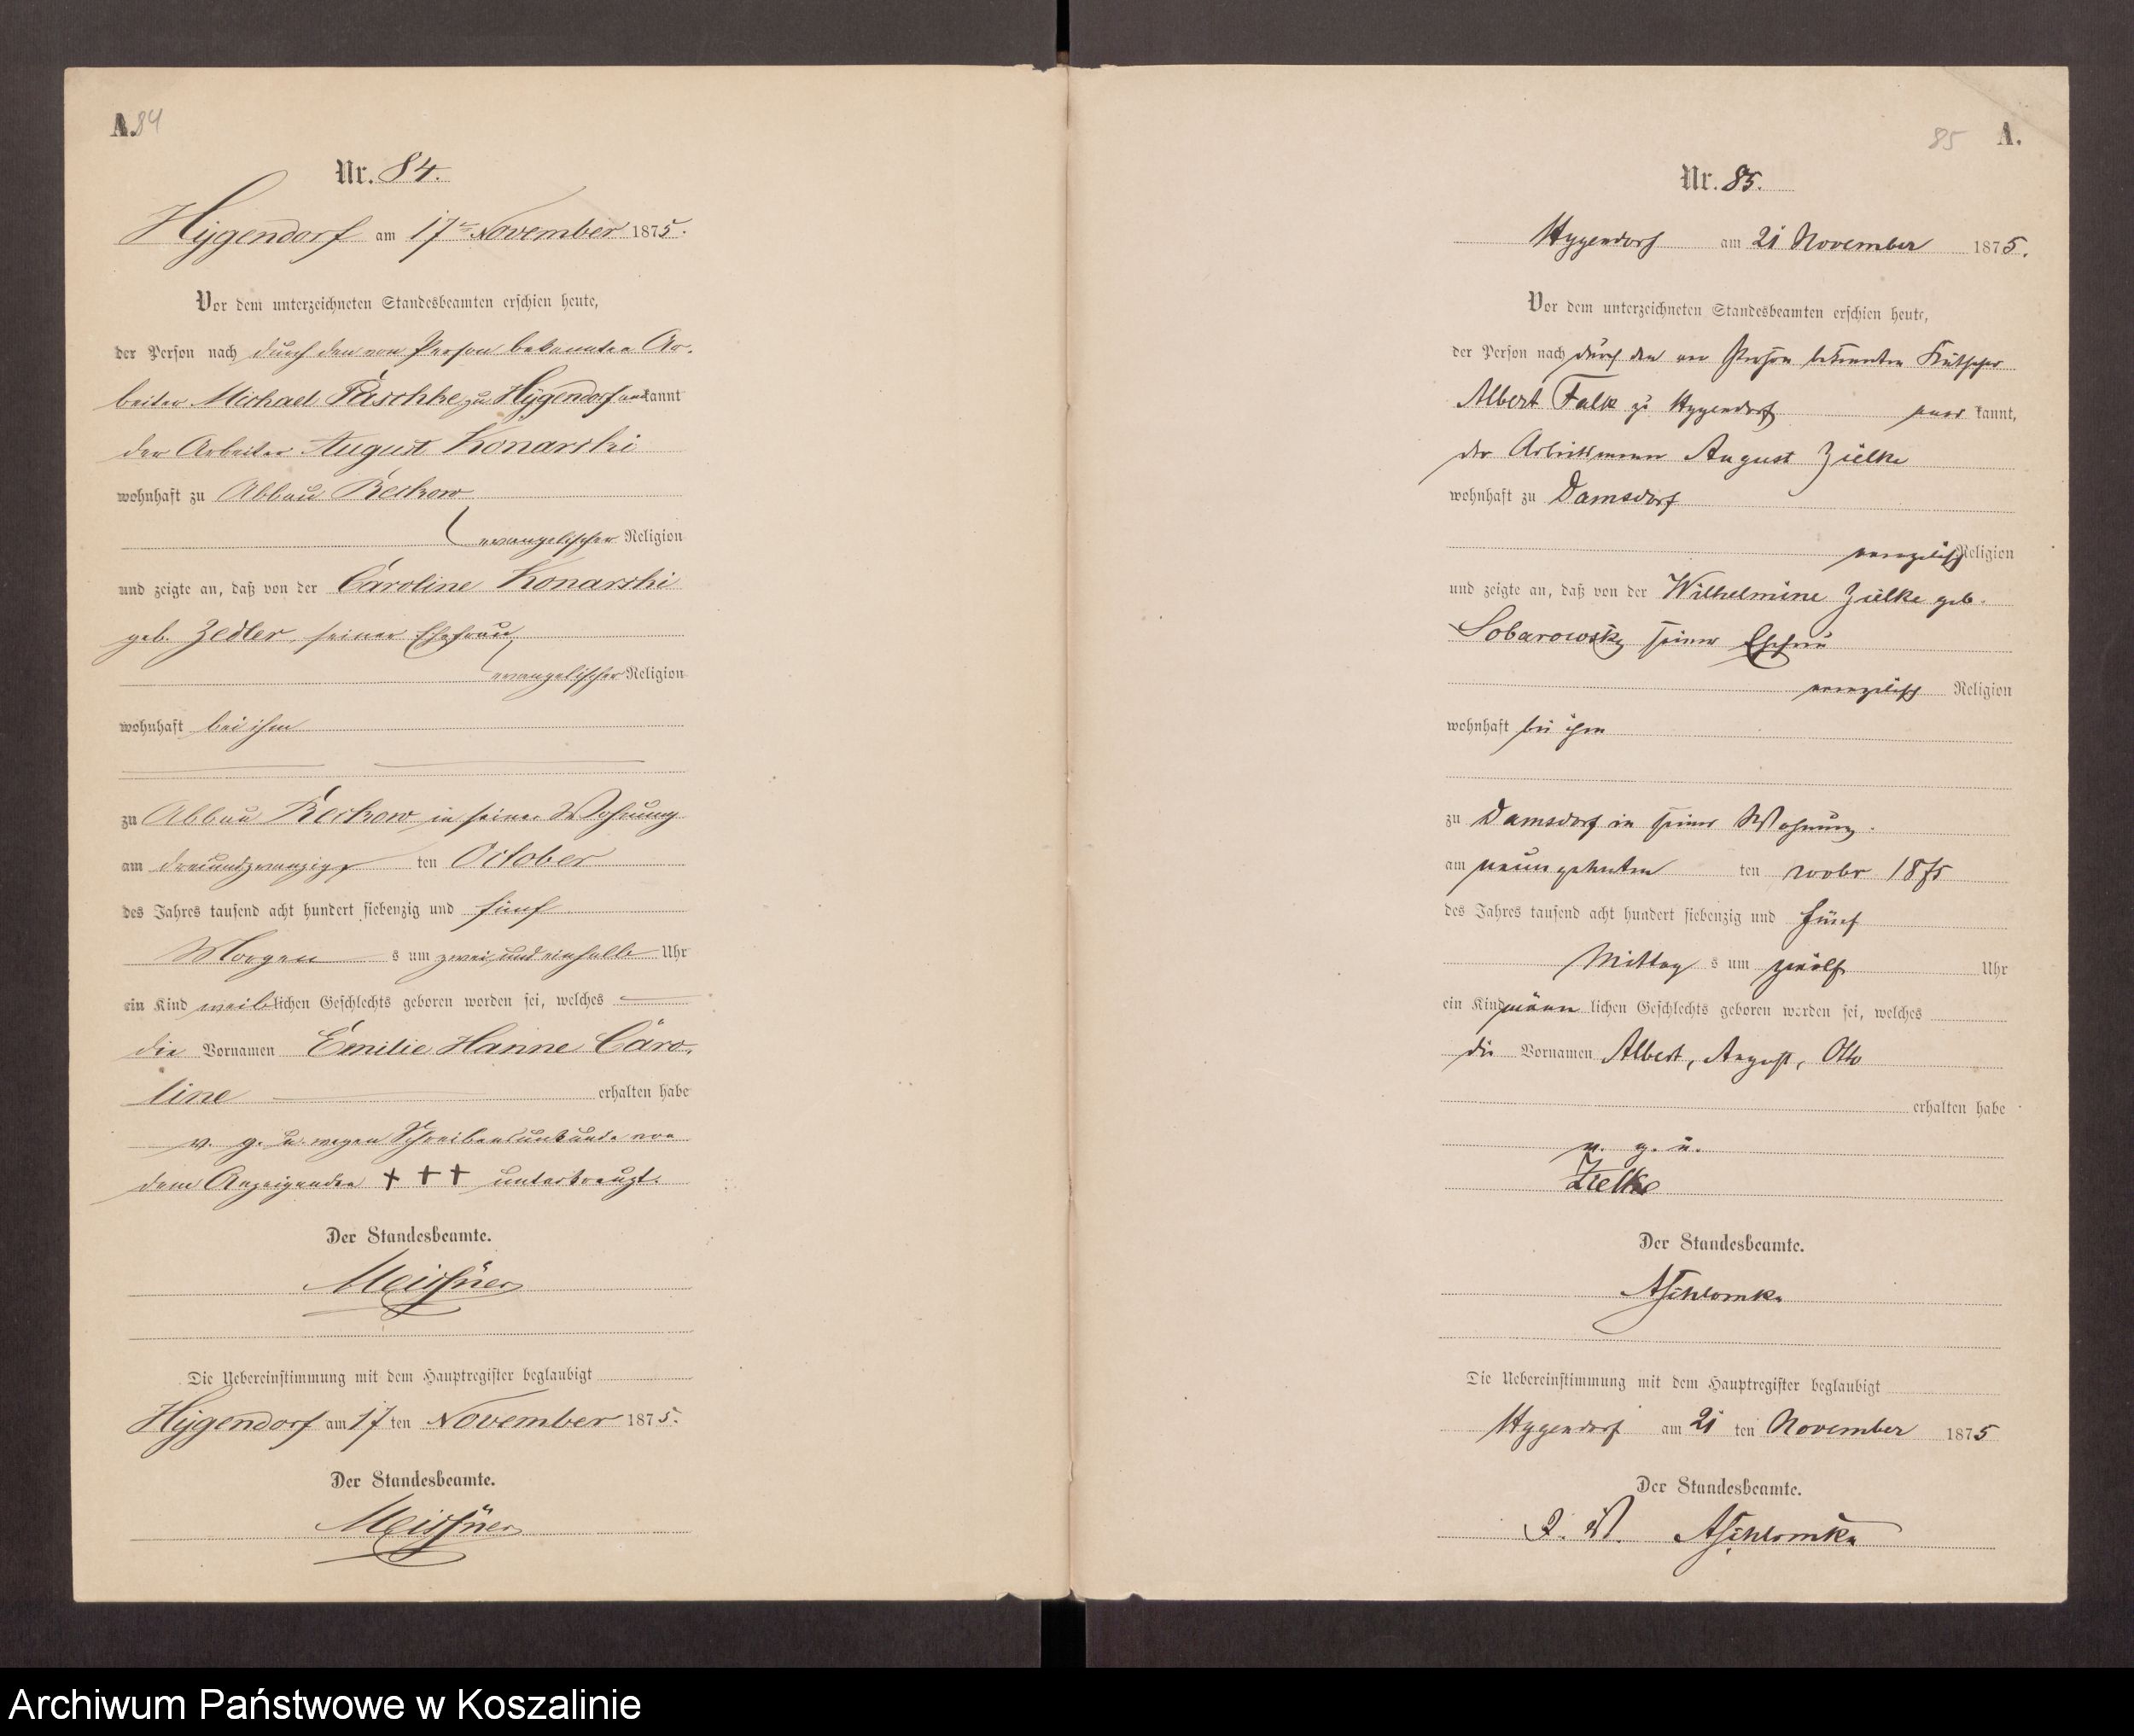 A. 84
Nr. 84.
Hygendorf am 17ten November 1875.
Vor dem unterzeichneten Standesbeamten erschien heute,
der Person nach durch den von Person bekannten Ar-
beiter Michael Paschke zu Hygendorf anerkannt
der Arbeiter August Konarski
wohnhaft zu Abbau Reckow
evangelischer Religion
und zeigte an, daß von der Caroline Konarski
geb. Zedler, seiner Ehefrau,
evangelischer Religion
wohnhaft bei ihm
zu Abbau Reckow in seiner Wohnung
am dreiundzwanzigs ten October
des Jahres tausend acht hundert siebenzig und fünf
Morgen s um zwei und einhalb Uhr
ein Kind weiblichen Geschlechts geboren worden sei, welches
die Vornamen Emilie Hanne Caro-
line erhalten habe
v. g. u. wegen Schreibensunkunde von
dem Anzeigenden +++ unterkreuzt.
Der Standesbeamte.
Meissner
Die Uebereinstimmung mit dem Hauptregister beglaubigt
Hygendorf am 17 ten November 1875.
Der Standesbeamte.
Meissner
85 A.
Nr. 85.
Hygendorf am 21 November 1875.
Vor dem unterzeichneten Standesbeamten erschien heute,
der Person nach durch den von Person bekannten Kutscher
Albert Falk zu Hygendorf kannt,
der Arbeitsmann August Zielke
wohnhaft zu Damsdorf
evangelisch Religion
und zeigte an, daß von der Wilhelmine Zielke geb.
Sobarowsky seiner Ehefrau
evangelisch Religion
wohnhaft bei ihm
zu Damsdorf in seiner Wohnung.
am neunzehnten ten novbr 1875
des Jahres tausend acht hundert siebenzig und fünf
Mittag s um zwölf Uhr
ein Kind männ lichen Geschlechts geboren worden sei, welches
die Vornamen Albert, August, Otto
erhalten habe
v. g. u.
Zielke
Der Standesbeamte.
Die Uebereinstimmung mit dem Hauptregister beglaubigt
Hygendorf am 21 ten November 1875
Der Standesbeamte.
Archiwum Państwowe w Koszalinie